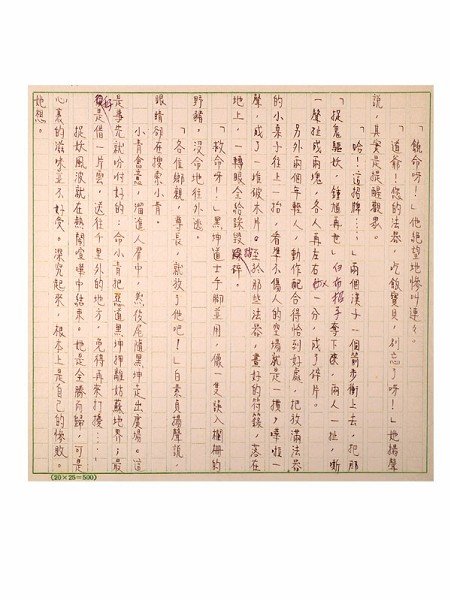 「饒命呀！」他絕望地慘叫連々。
「道爺！您的法器、吃飯寶貝，別忘了呀！」她揚聲
說，其實是提醒觀眾。
「哈！這招牌⋯⋯」兩個漢子一個箭步衝上去，把那
「捉鬼驅妖，鍾馗再世」白布招子奪下來，兩人一扯，嘶
一聲扯成兩塊，各人再左右一分，成了碎片。
另外兩個年輕人，動作配合得恰到好處，把放滿法器
的小桌子往上一抬，看準不傷人的空場就是一摜，嘩啦一
聲，成了一堆破木片。至於那些法器，畫好的符籙，落在
地上，一轉眼全給踩毀踩碎。
「救命呀！」黑坤道士手腳並用，像一隻誤入欄柵的
野豬，沒命地往外逃
「各位鄉親、尊長，就放了他吧！」白素貞揚聲說，
眼睛卻在搜索小青。
小青會意，溜進人羣中，然後尾隨黑坤走出廣場。這
是事先就吩咐好的：命小青把惡道黑坤押離姑蘇地界；最
好是借一片雲，送往千里外的地方，免得再來打擾⋯⋯
捉妖風波就在熱鬧聲中結束。她是全勝而歸，可是
心裏的滋味並不好受。深究起來，根本上是自己的慘敗。
她想。
(20×25=500)